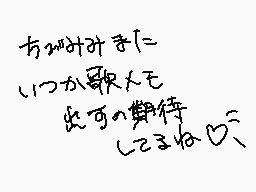 ちがみみまた
いつか歌メモ
出すの期待
してるね♡